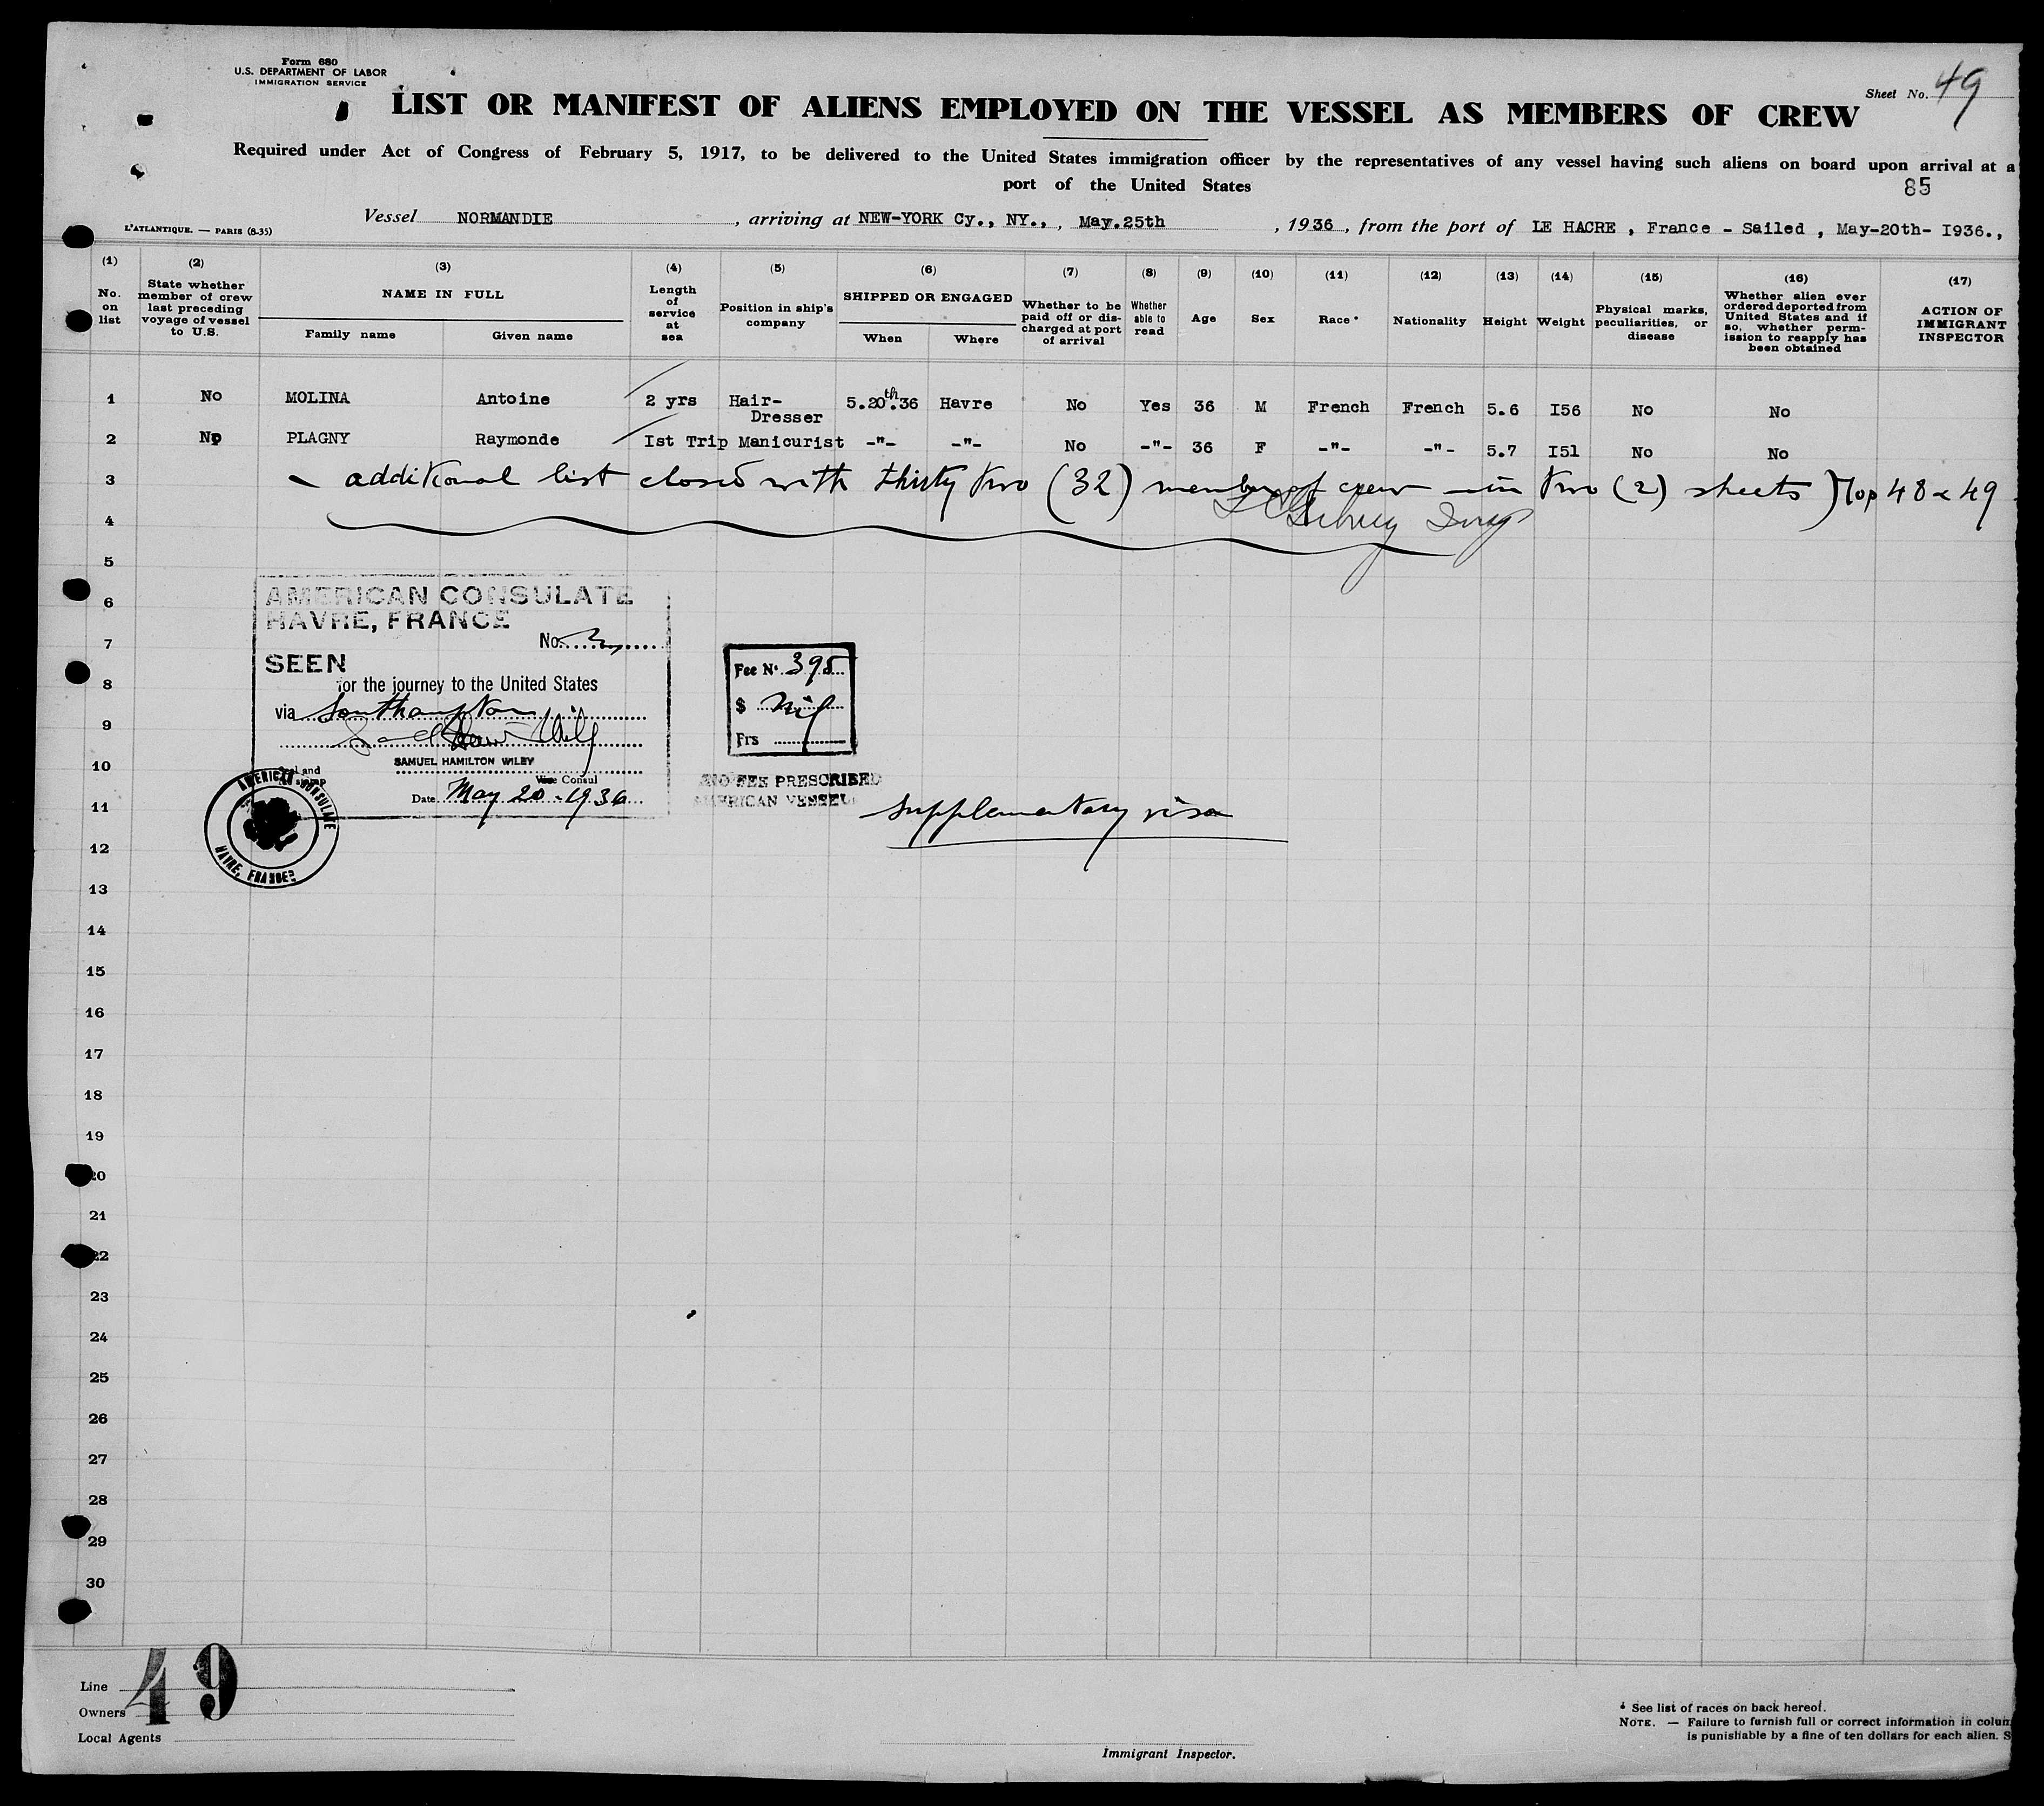 Form 680
U.S. DEPARTMENT OF LABOR
IMMIGRATION SERVICE
Sheet No. 49
LIST OR MANIFEST OF ALIENS EMPLOYED ON THE VESSEL AS MEMBERS OF CREW
Required under Act of Congress of February 5, 1917, to be delivered to the United States immigration officer by the representatives of any vessel having such aliens on board upon arrival at a
port of the United States
85
Vessel NORMANDIE , arriving at NEW-YORK Cy., NY., , May.25th , 1936 , from the port of LE HACRE , France - Sailed , May-20th- I936.,
L'ATLANTIQUE. — PARIS (8-35)
(1) (2) (3) (4) (5) (6) (7) (8) (9) (10) (11) (12) (13) (14) (15) (16) (17)
No. on list
State whether member of crew last preceding voyage of vessel to U.S.
NAME IN FULL
Family name Given name
Length of service at sea
Position in ship's company
SHIPPED OR ENGAGED
When Where
Whether to be paid off or dis-charged at port of arrival
Whether able to read
Age
Sex
Race *
Nationality
Height
Weight
Physical marks, peculiarities, or disease
Whether alien ever ordered deported from United States and if so, whether perm-ission to reapply has been obtained
ACTION OF IMMIGRANT INSPECTOR
1 No MOLINA Antoine 2 yrs Hair-Dresser 5.20th.36 Havre No Yes 36 M French French 5.6 I56 No No
2 No PLAGNY Raymonde Ist Trip Manicurist -"- -"- No -"- 36 F -"- -"- 5.7 I51 No No
3 additional list closed with thirty two (32) members of crew in two (2) sheets) Nos 48 & 49
4
5
6
7
8
9
10
11
12
13
14
15
16
17
18
19
20
21
22
23
24
25
26
27
28
29
30
AMERICAN CONSULATE
HAVRE, FRANCE
No.
SEEN
for the journey to the United States
via Southampton
SAMUEL HAMILTON WILEY
Vice Consul
Date May 20-1936
Seal and
stamp
AMERICAN CONSULATE
HAVRE, FRANCE
Fee No. 395
$ Nil
Frs
NO FEE PRESCRIBED
AMERICAN VESSEL
Supplementary visa
49
Line
Owners
Local Agents
Immigrant Inspector.
* See list of races on back hereof.
NOTE. — Failure to furnish full or correct information in colum
is punishable by a fine of ten dollars for each alien. S